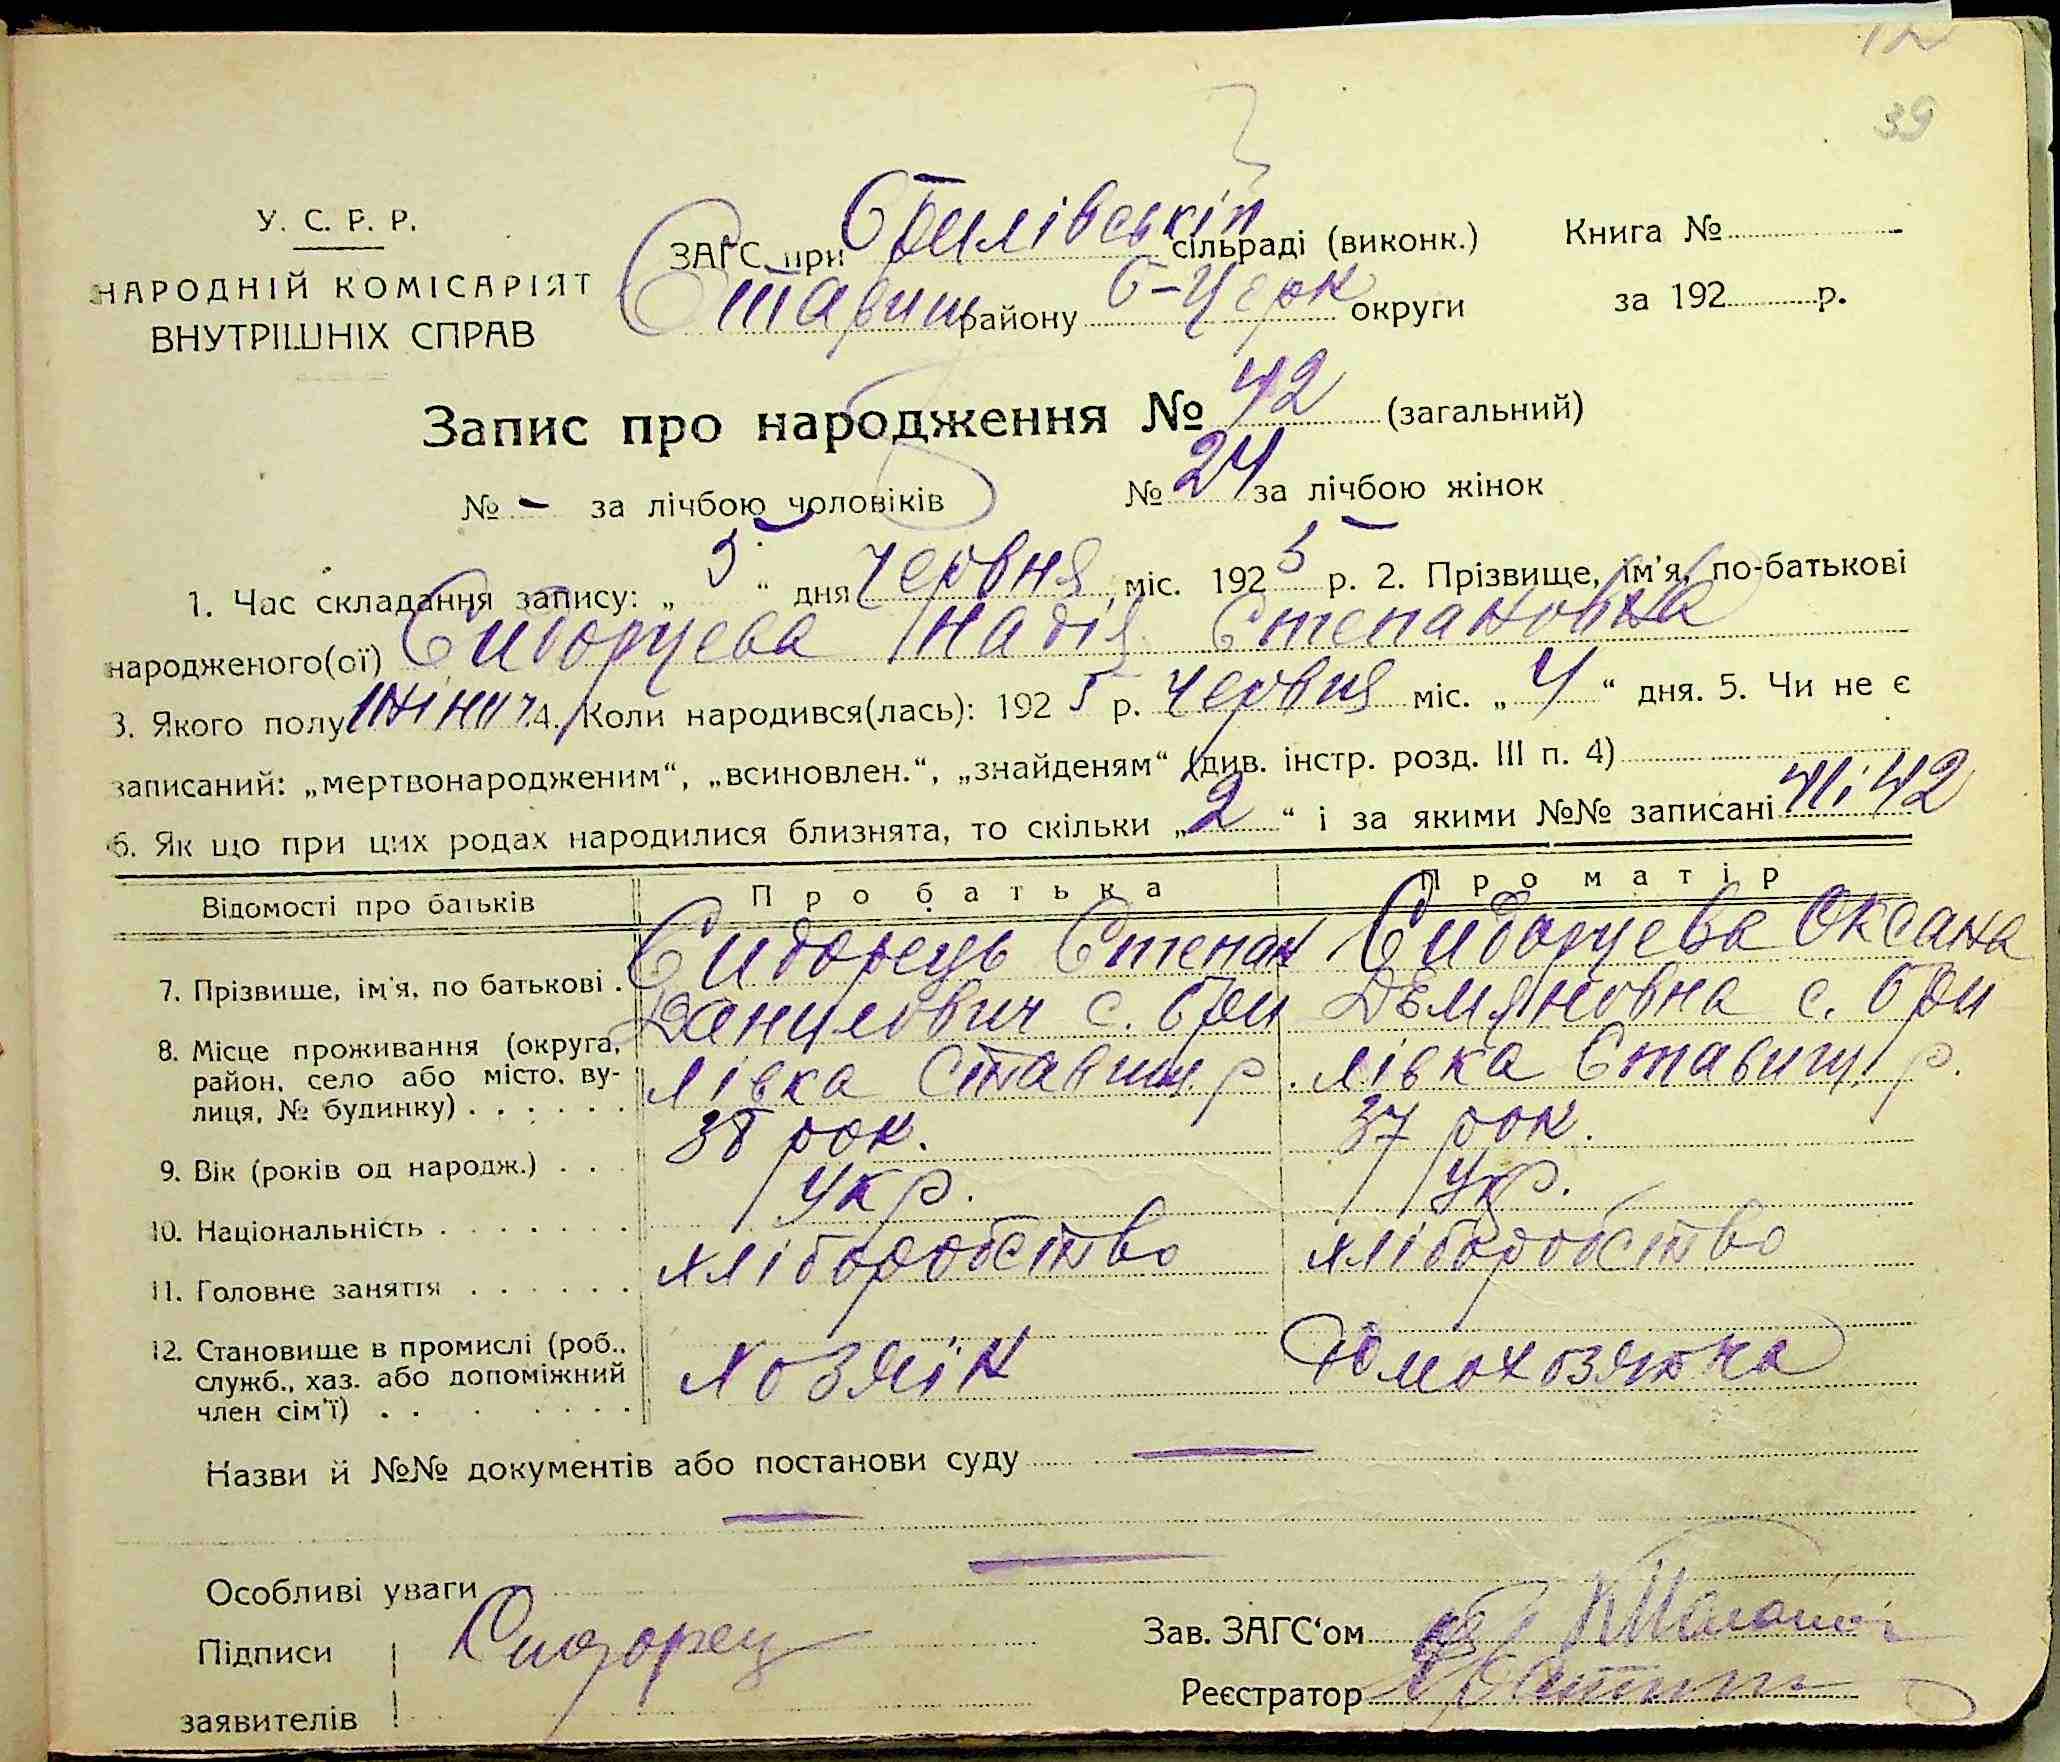 12
39
У. С. Р. Р.
НАРОДНІЙ КОМІСАРІЯТ
ВНУТРІШНІХ СПРАВ
ЗАГС при сільраді (виконк.) Книга №
Ставищ району Б-Церк округи за 192 р.
Запис про народження № 42 (загальний)
№ - за лічбою чоловіків № 24 за лічбою жінок
1. Час складання запису: „ 5 “ дня червня міс. 1925 р. 2. Прізвище, ім'я, по-батькові
народженого(ої) Сидорцева Надія Степановна
3. Якого полу жіноч. 4. Коли народився(лась): 1925 р. червня міс. „ 4 “ дня. 5. Чи не є
записаний: „мертвонародженим“, „всиновлен.“, „знайденям“ (див. інстр. розд. III п. 4)
6. Як що при цих родах народилися близнята, то скільки „ 2 “ і за якими №№ записані 41 і 42
Відомості про батьків Про батька Про матір
7. Прізвище, ім'я, по батькові . Сидорець Степан Сидорцева Оксана
Данилович с. Бри Демяновна с. Бри
8. Місце проживання (округа, район, село або місто, вулиця, № будинку) . . . . . . лівка Ставищ. р. лівка Ставищ. р.
9. Вік (років од народж.) . . . 38 рок. 37 рок.
10. Національність . . . . . . . Укр. Укр.
11. Головне заняття . . . . . . хліборобство хліборобство
12. Становище в промислі (роб., служб., хаз. або допоміжний член сім'ї) . . . . . . . хозяїн домохозяйка
Назви й №№ документів або постанови суду —
—
Особливі уваги —
Підписи Сидорец Зав. ЗАГС'ом
заявителів Реєстратор